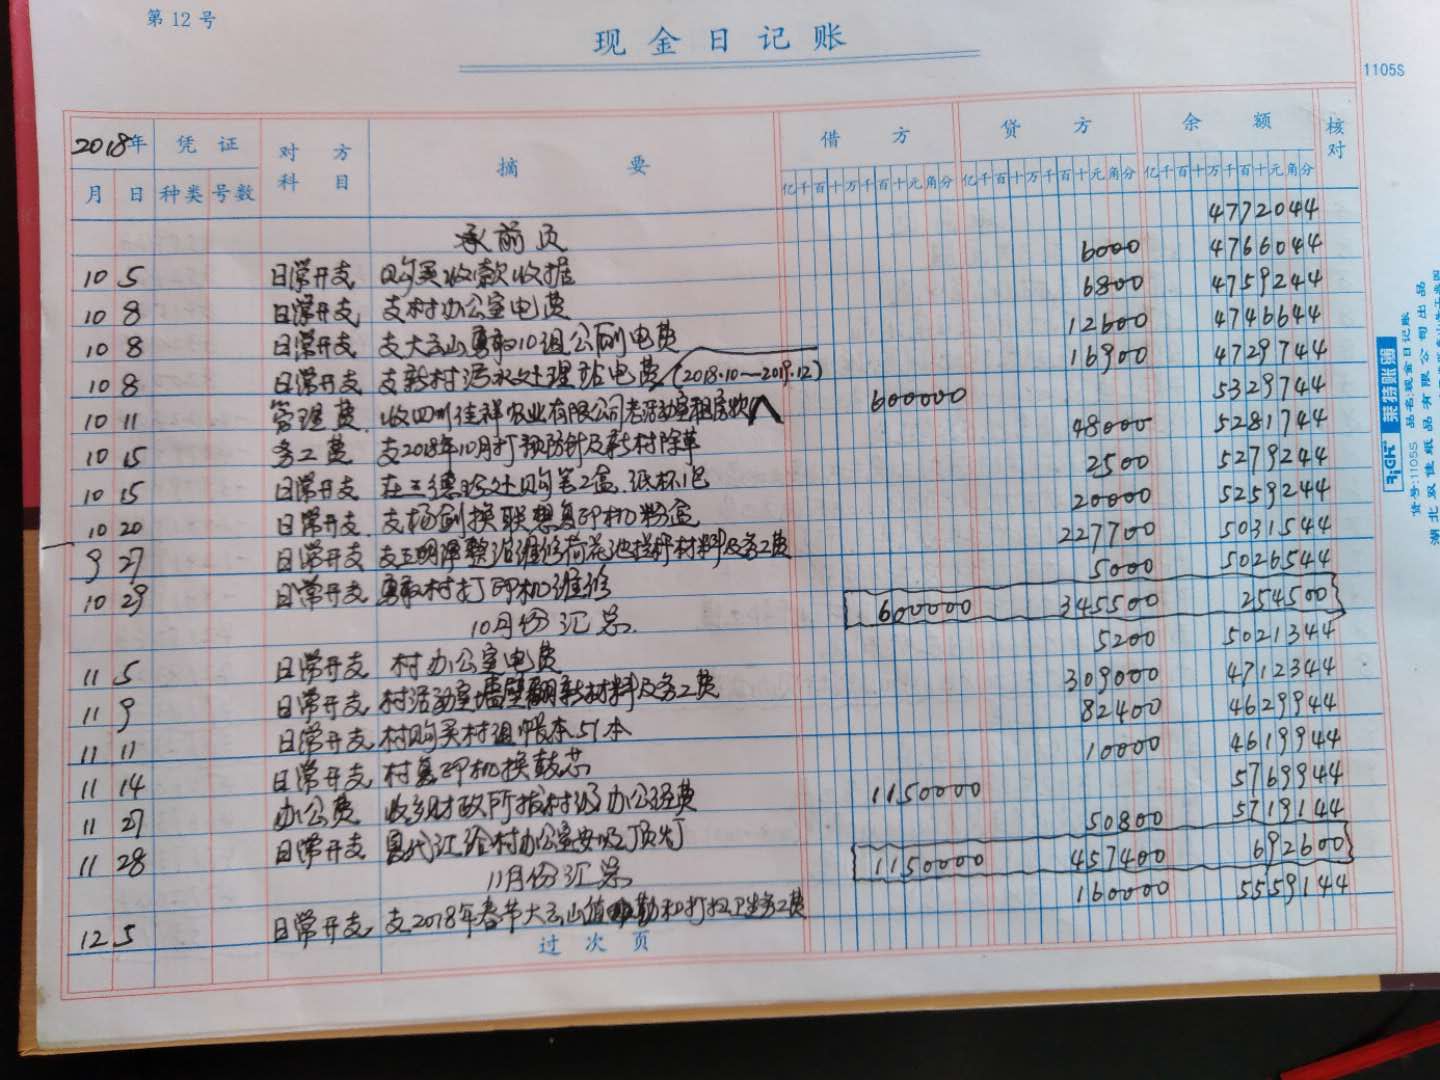 第 12 号
现金日记账
1105S
2018年 凭证 对方科目 摘要 借方 贷方 余额 核对
月 日 种类 号数 亿千百十万千百十元角分 亿千百十万千百十元角分 亿千百十万千百十元角分
承前页 4772044
10 5 日常开支 购买收款收据 6000 4766044
10 8 日常开支 支村办公室电费 6800 4759244
10 8 日常开支 支大云山勇敢10组公厕电费 12600 4746644
10 8 日常开支 支新村污水处理站电费(2018.10—2019.12) 16900 4729744
10 11 管理费 收四川佳祥农业有限公司老活动室租房款 600000 5329744
10 15 务工费 支2018年10月打预防针及新村除草 48000 5281744
10 15 日常开支 在王德 处购笔2盒.纸杯1包 2500 5279244
10 20 日常开支 支杨剑换联想复印机粉盒 20000 5259244
9 27 日常开支 支王明 整治维修荷花池拦杆材料及务工费 227700 5031544
10 29 日常开支 勇敢村打印机维修 5000 5026544
10月份汇总 600000 345500 254500
11 5 日常开支 村办公室电费 5200 5021344
11 9 日常开支 村活动室墙壁翻新材料及务工费 309000 4712344
11 11 日常开支 村购买村组帐本51本 82400 4629944
11 14 日常开支 村复印机换鼓芯 10000 4619944
11 27 办公费 收乡财政所拨村级办公经费 1150000 5769944
11 28 日常开支 代江给村办公室安吸顶灯 50800 5719144
11月份汇总 1150000 457400 692600
12 5 日常开支 支2018年春节大云山值勤和打扫卫生务工费 160000 5559144
过次页
莱特账簿
货号:1105S 品名:现金日记账
湖北双佳纸品有限公司出品